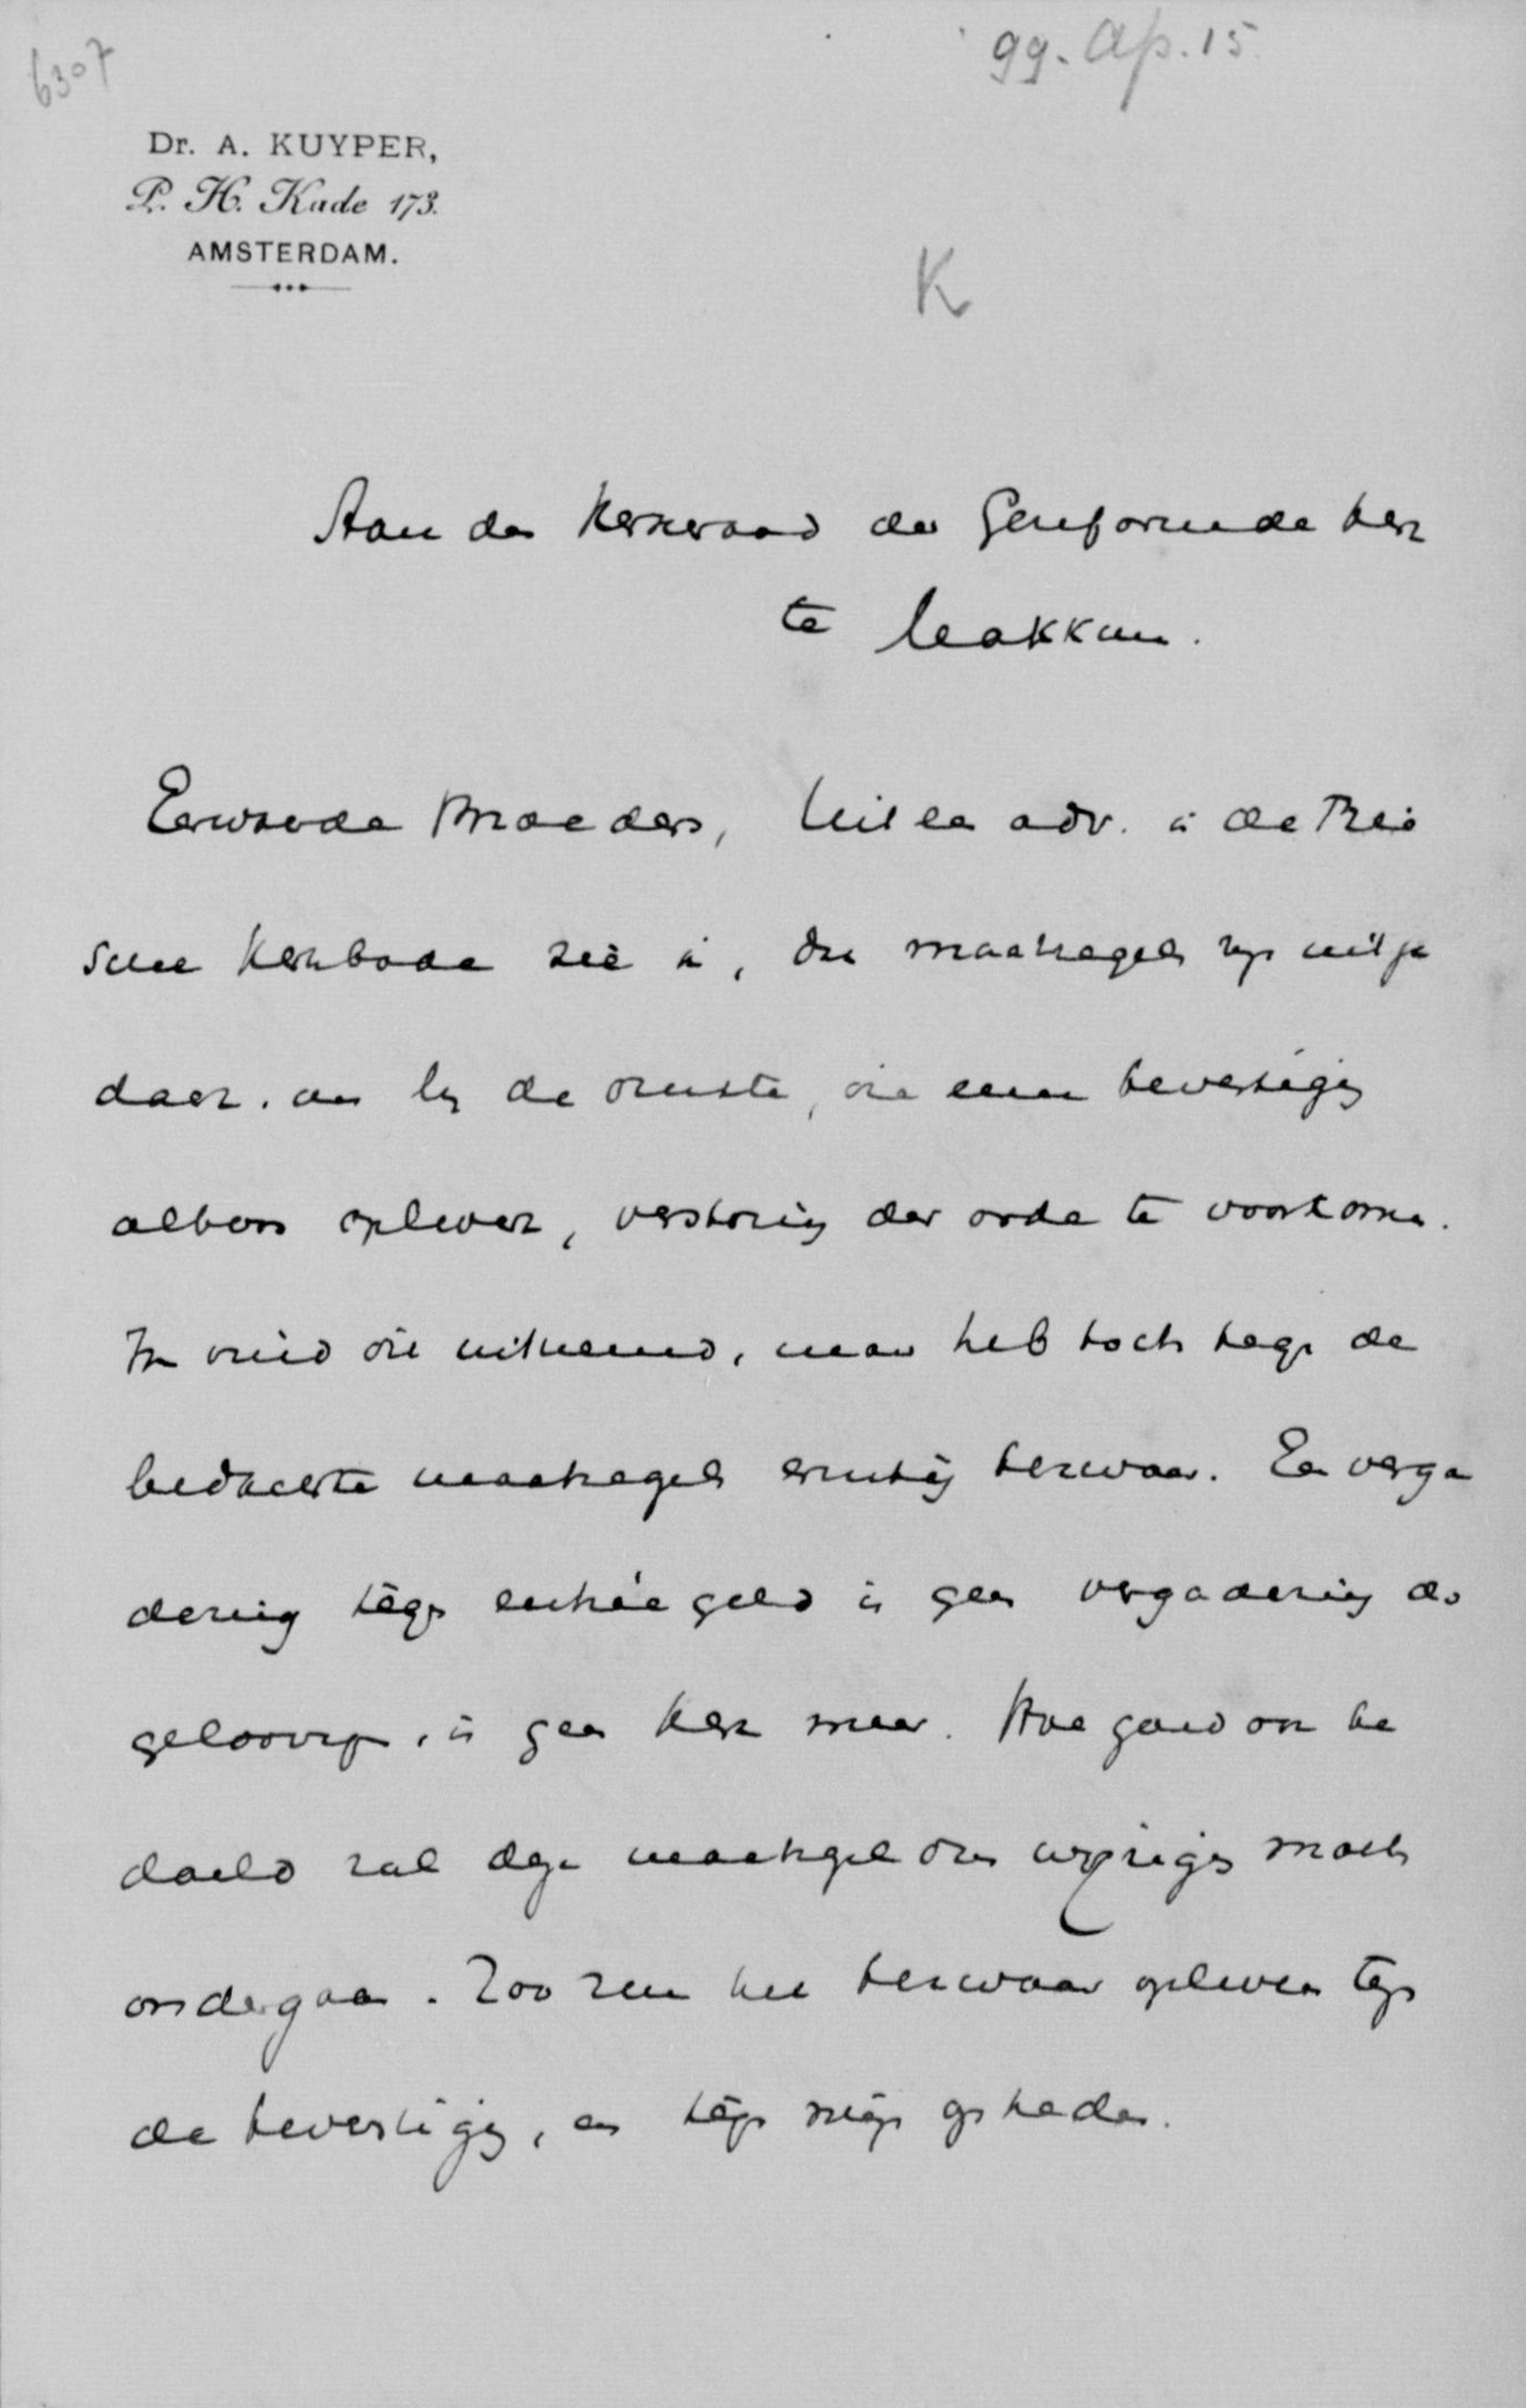 6307
99. Ap. 15
Dr. A. KUYPER,
P. H. Kade 173.
AMSTERDAM.
K
Aan den Kerkeraad der Gereformeerde Kerk
te Makkum.
Eerwaarde Broeders, Uit een adv. in de Frie
sche Kerkbode zie ik, dat maatregelen zijn uitge
dacht, om bij de drukte, die eene bevestiging
althans oplevert, verstoring der orde te voorkomen.
Ik vind dit uitnemend, maar heb toch tegen de
bedachte maatregelen ernstig bezwaar. Een verga
dering tegen entrée geld is geen vergadering der
geloovigen, is geen Kerk meer. Hoe goed ook be
doeld zal deze maatregel dus wijziging moeten
ondergaan. Zoo zou het bezwaar opleveren tegen
de bevestiging, en tegen mijn optreden.